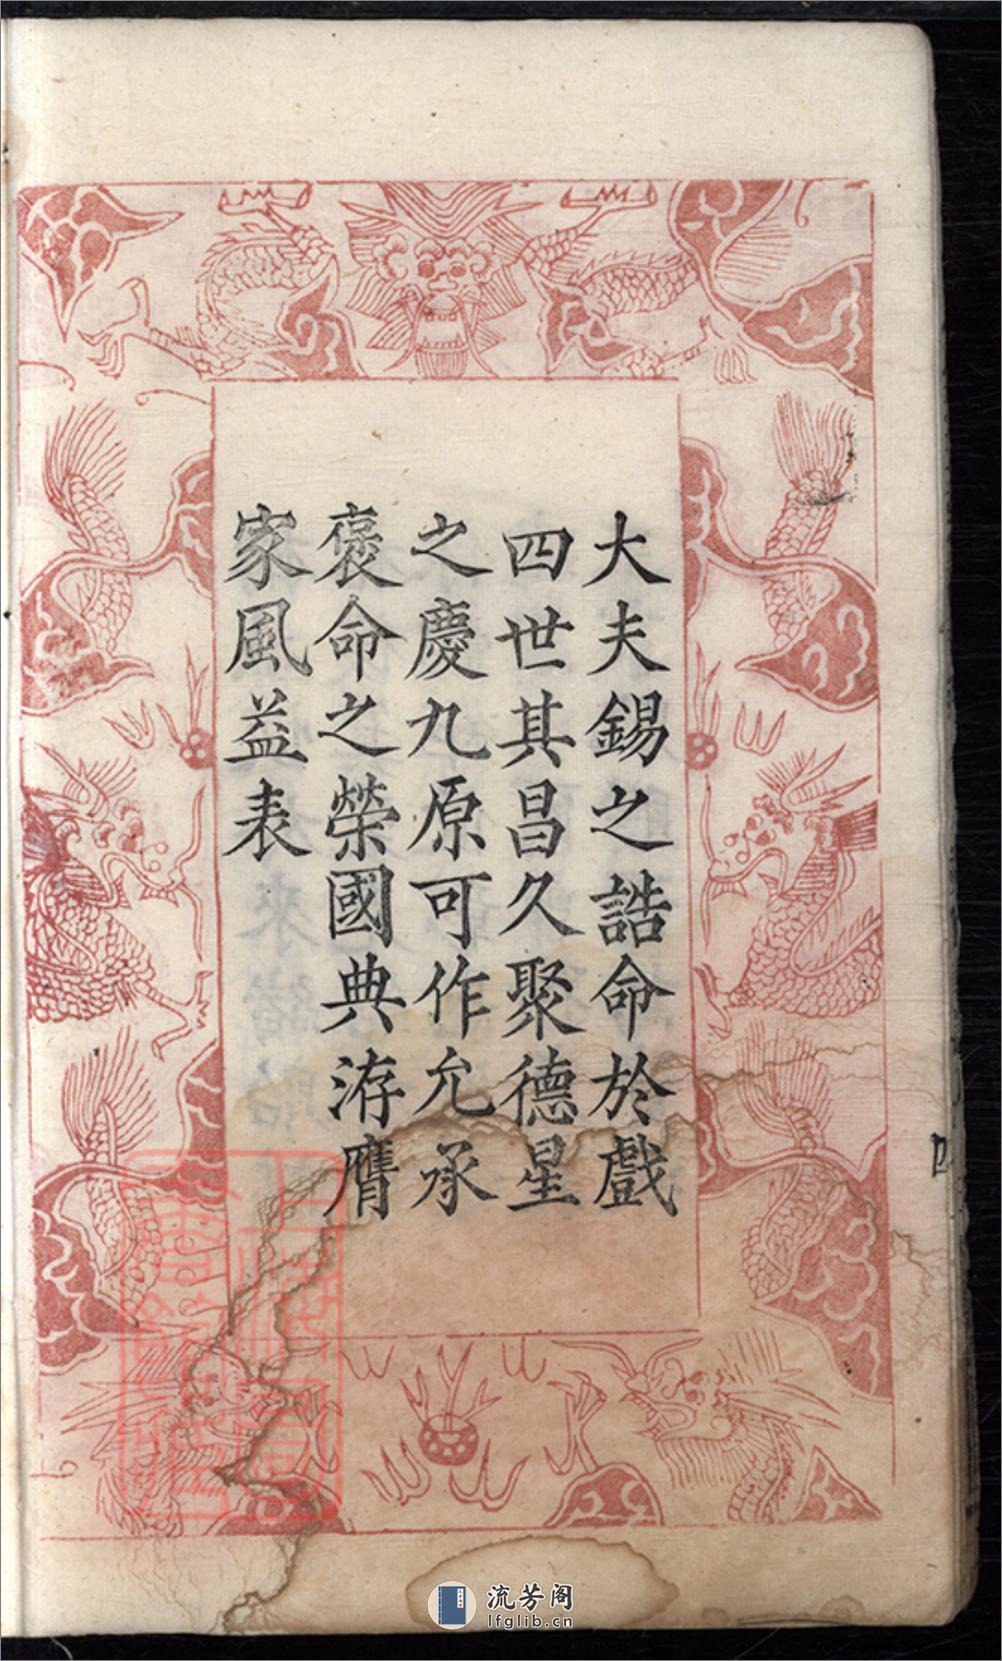 大夫錫之誥命於戲
四世其昌久聚德星
之慶九原可作允承
褒命之榮國典洊膺
家風益表
流芳阁
lfglib.cn